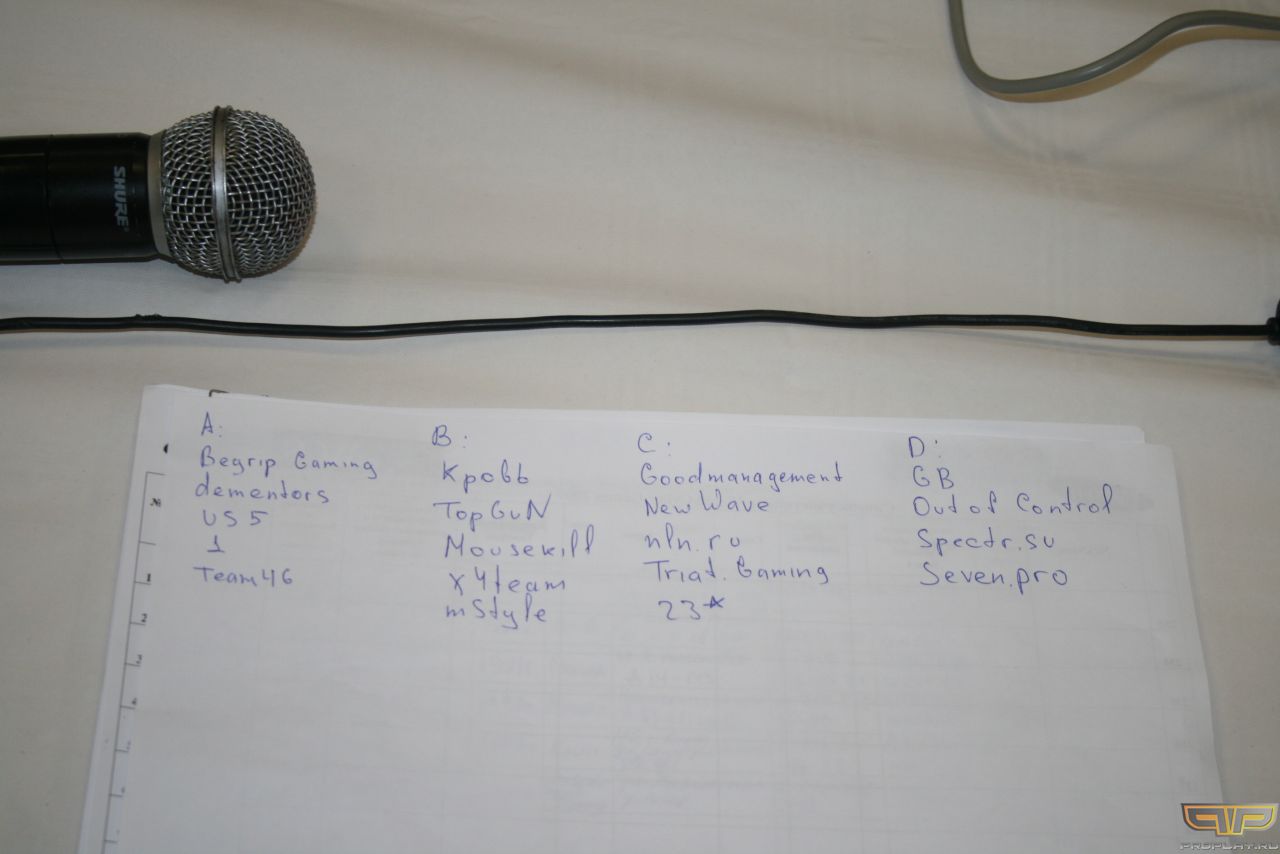 SHURE
A:
Begrip Gaming
dementors
US5
1
Team46
B:
Кровь
TopGuN
Mousekill
x4team
mStyle
C:
Goodmanagement
NewWave
nln.ru
Triat.Gaming
23*
D:
GB
Out of Control
Spectr.su
Seven.pro
№
1
2
3
4
PROPLAY.RU